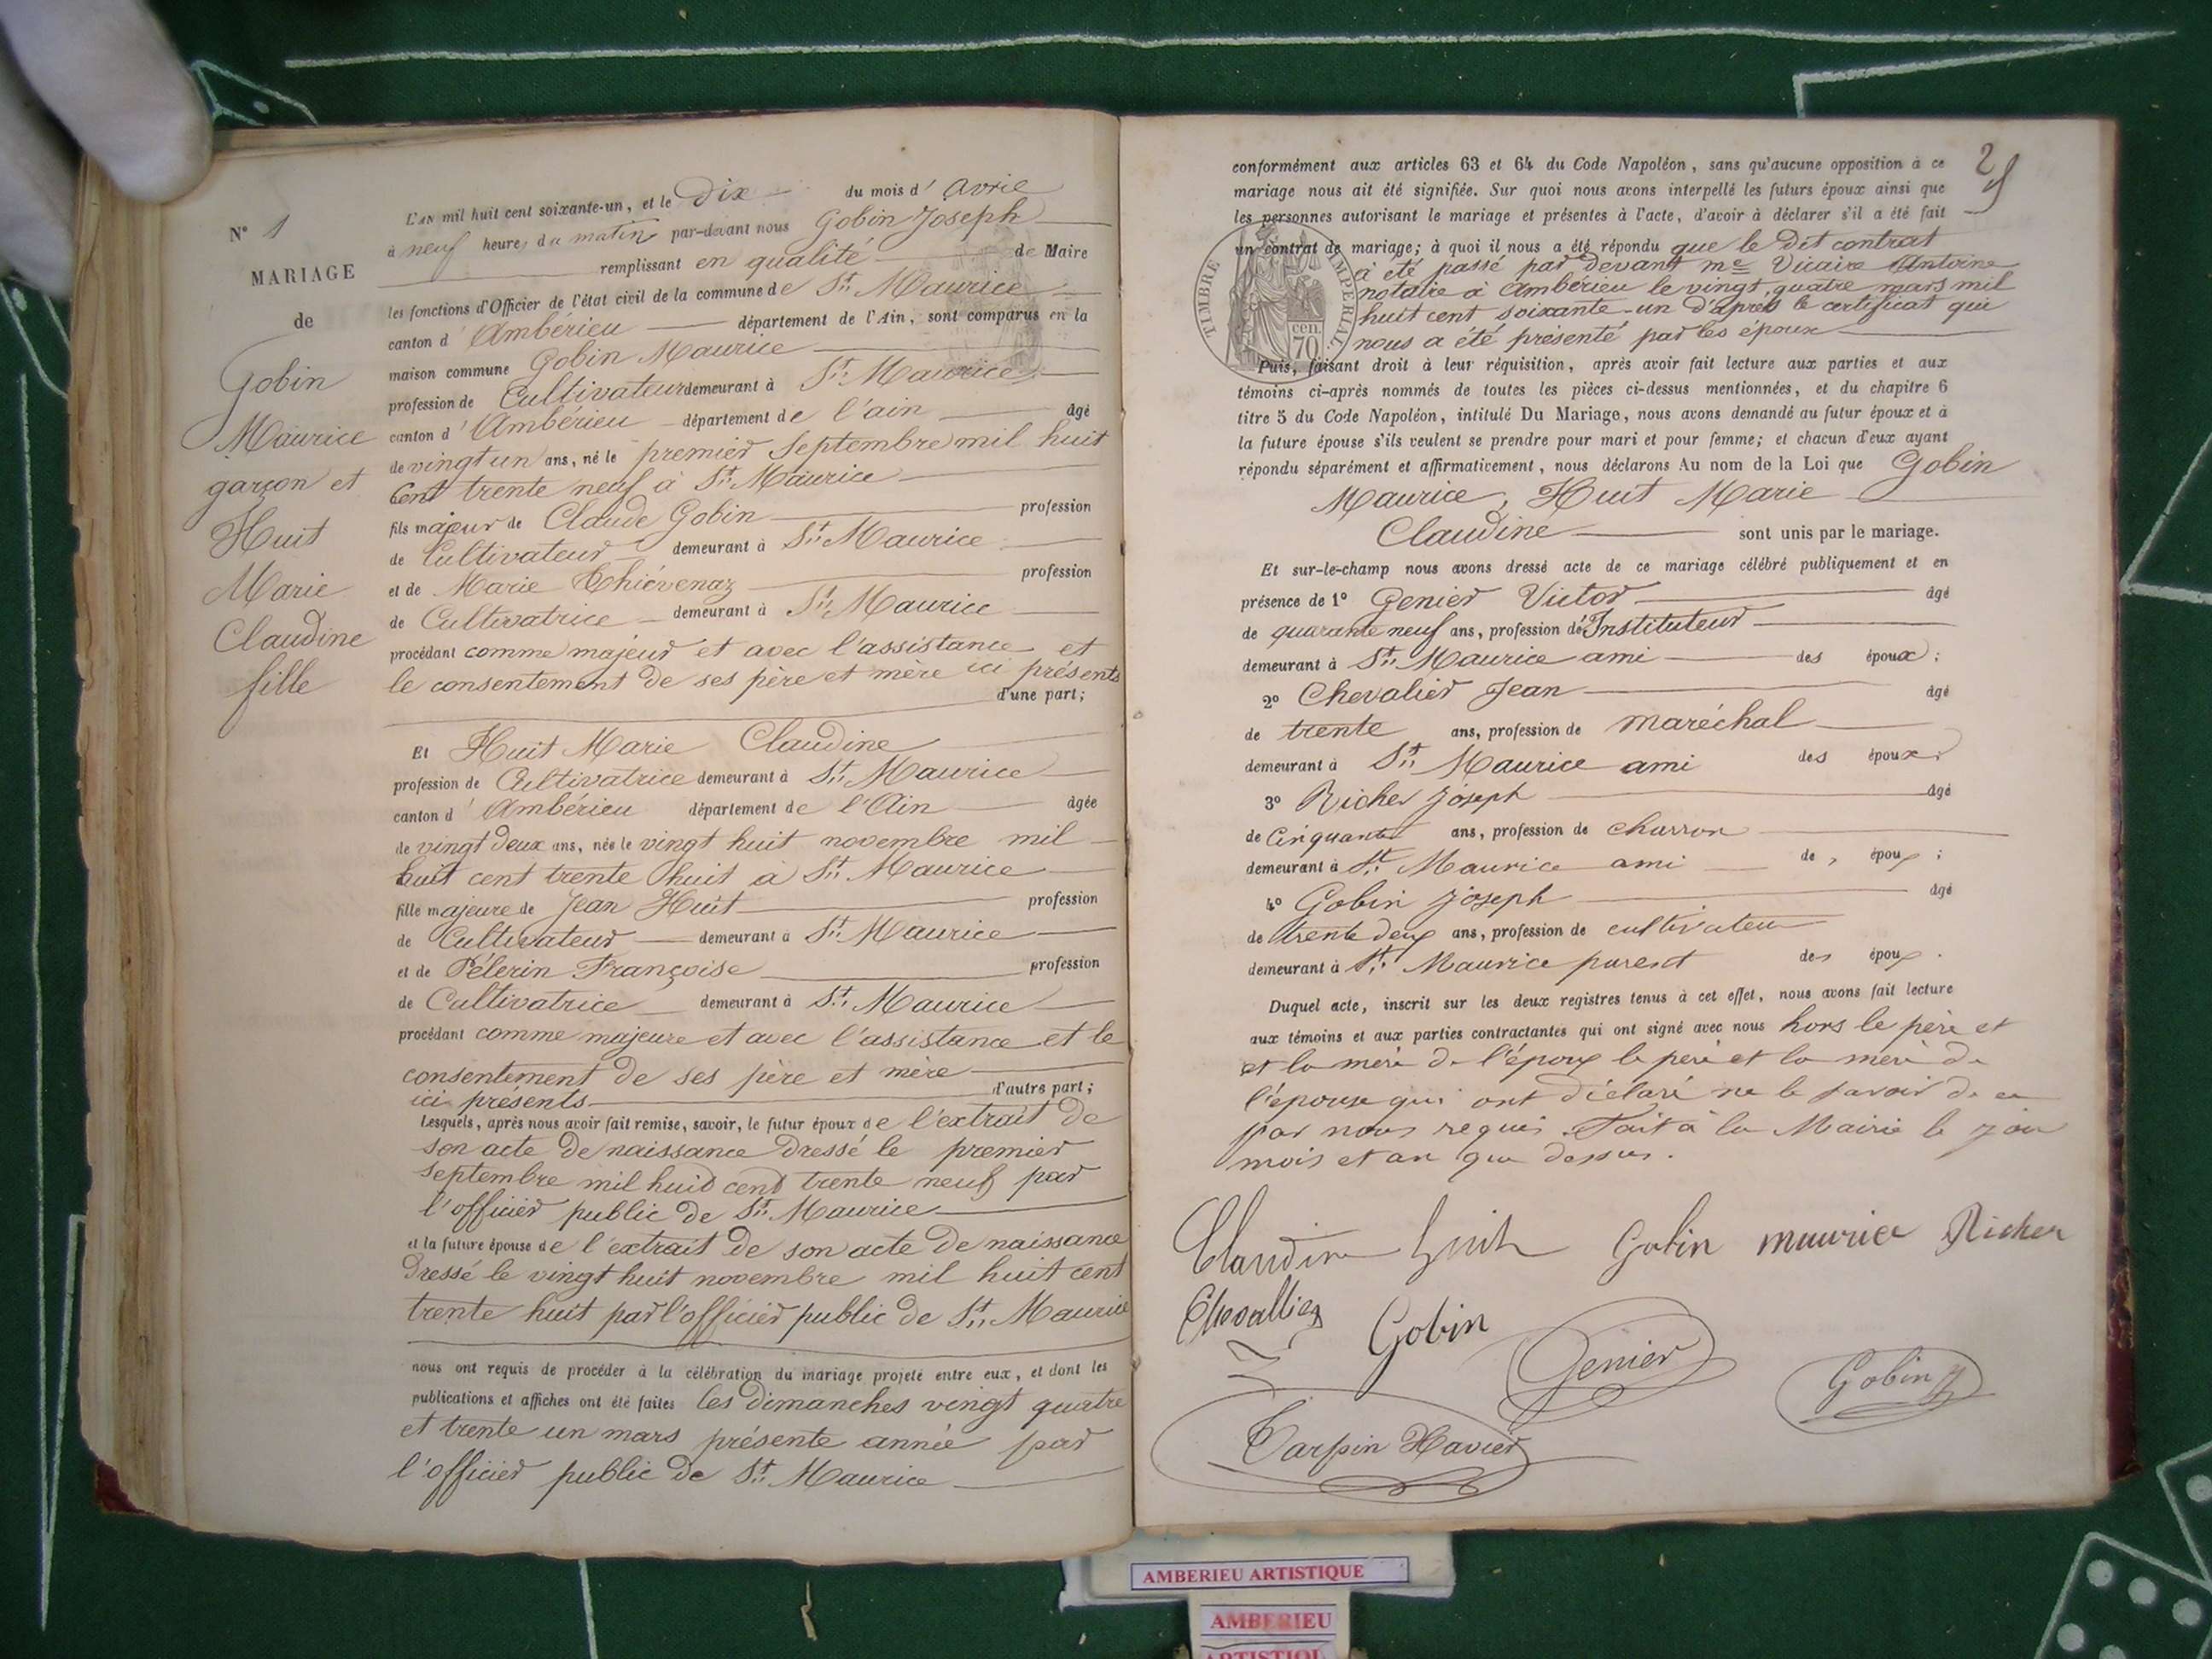 N° 1
MARIAGE
de
Gobin
Maurice
garçon et
Huit
Marie
Claudine
fille
L'AN mil huit cent soixante-un, et le Dix du mois d' avril
à neuf heures du matin par-devant nous Gobin Joseph
remplissant en qualité de Maire
les fonctions d'Officier de l'état civil de la commune de St. Maurice
canton d' Ambérieu département de l'Ain, sont comparus en la
maison commune Gobin Maurice
profession de Cultivateur demeurant à St. Maurice
canton d' Ambérieu département de l'ain âgé
de vingt un ans, né le premier Septembre mil huit
cent trente neuf à St. Maurice
fils majeur de Claude Gobin profession
de Cultivateur demeurant à St. Maurice
et de Marie Thiévenaz profession
de Cultivatrice demeurant à St. Maurice
procédant comme majeur et avec l'assistance et
le consentement de ses père et mère ici présents
d'une part;
Et Huit Marie Claudine
profession de Cultivatrice demeurant à St. Maurice
canton d' Ambérieu département de l'Ain âgée
de vingt deux ans, née le vingt huit novembre mil
huit cent trente huit à St. Maurice
fille majeure de Jean Huit profession
de Cultivateur demeurant à St. Maurice
et de Pélerin Françoise profession
de Cultivatrice demeurant à St. Maurice
procédant comme majeure et avec l'assistance et le
consentement de ses père et mère
ici présents d'autre part;
Lesquels, après nous avoir fait remise, savoir, le futur époux de l'extrait de
son acte de naissance dressé le premier
septembre mil huit cent trente neuf par
l'officier public de St. Maurice
et la future épouse de l'extrait de son acte de naissance
dressé le vingt huit novembre mil huit cent
trente huit par l'officier public de St. Maurice
nous ont requis de procéder à la célébration du mariage projeté entre eux, et dont les
publications et affiches ont été faites les dimanches vingt quatre
et trente un mars présente année par
l'officier public de St. Maurice
2
conformément aux articles 63 et 64 du Code Napoléon, sans qu'aucune opposition à ce
mariage nous ait été signifiée. Sur quoi nous avons interpellé les futurs époux ainsi que
les personnes autorisant le mariage et présentes à l'acte, d'avoir à déclarer s'il a été fait
un contrat de mariage; à quoi il nous a été répondu que le dit contrat
à été passé par devant me Vicaire Antoine
notaire à Ambérieu le vingt quatre mars mil
huit cent soixante-un d'après le certificat qui
nous a été présenté par les époux
TIMBRE IMPERIAL
70 cen.
Puis, faisant droit à leur réquisition, après avoir fait lecture aux parties et aux
témoins ci-après nommés de toutes les pièces ci-dessus mentionnées, et du chapitre 6
titre 5 du Code Napoléon, intitulé Du Mariage, nous avons demandé au futur époux et à
la future épouse s'ils veulent se prendre pour mari et pour femme; et chacun d'eux ayant
répondu séparément et affirmativement, nous déclarons Au nom de la Loi que Gobin
Maurice, Huit Marie
Claudine sont unis par le mariage.
Et sur-le-champ nous avons dressé acte de ce mariage célébré publiquement et en
présence de 1° Genier Victor âgé
de quarante neuf ans, profession d'Instituteur
demeurant à St. Maurice ami des époux;
2° Chevalier Jean âgé
de trente ans, profession de maréchal
demeurant à St. Maurice ami des époux;
3° Richer Joseph âgé
de Cinquante ans, profession de charron
demeurant à St. Maurice ami des époux;
4° Gobin Joseph âgé
de trente deux ans, profession de cultivateur
demeurant à St. Maurice parent des époux.
Duquel acte, inscrit sur les deux registres tenus à cet effet, nous avons fait lecture
aux témoins et aux parties contractantes qui ont signé avec nous hors le père et
et la mère de l'époux le père et la mère de
l'épouse qui ont déclaré ne le savoir de ce
par nous requis. Fait à la Mairie le jour
mois et an que dessus.
Claudine huit Gobin maurice Richer
Chevallier Gobin Genier Gobin
Tarpin Xavier
AMBERIEU ARTISTIQUE
AMBERIEU
ARTISTIQUE